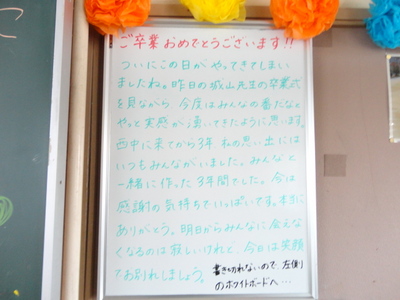 ご卒業おめでとうございます!!
ついにこの日がやってきてしまい
ましたね。昨日の城山先生の卒業式
を見ながら、今度はみんなの番だなと
やっと実感が湧いてきたように思います。
西中に来てから3年、私の思い出には
いつもみんながいました。みんなと
一緒に作った3年間でした。今は
感謝の気持ちでいっぱいです。本当に
ありがとう。明日からみんなに会えな
くなるのは寂しいけれど、今日は笑顔
でお別れしましょう。
書ききれないので、左側り
のホワイトボードへ…